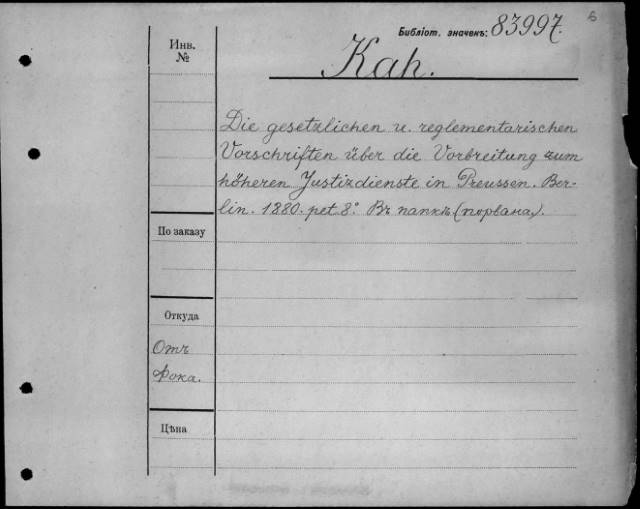 6
Библіот. значекъ: 83997.
Инв.
№
Kah.
Die gesetzlichen u. reglementarischen
Vorschriften über die Vorbreitung zum
höheren Justizdienste in Preussen. Ber-
lin. 1880. pet 8.° Въ папкѣ (порвана).
По заказу
Откуда
Отъ
Фока.
Цѣна